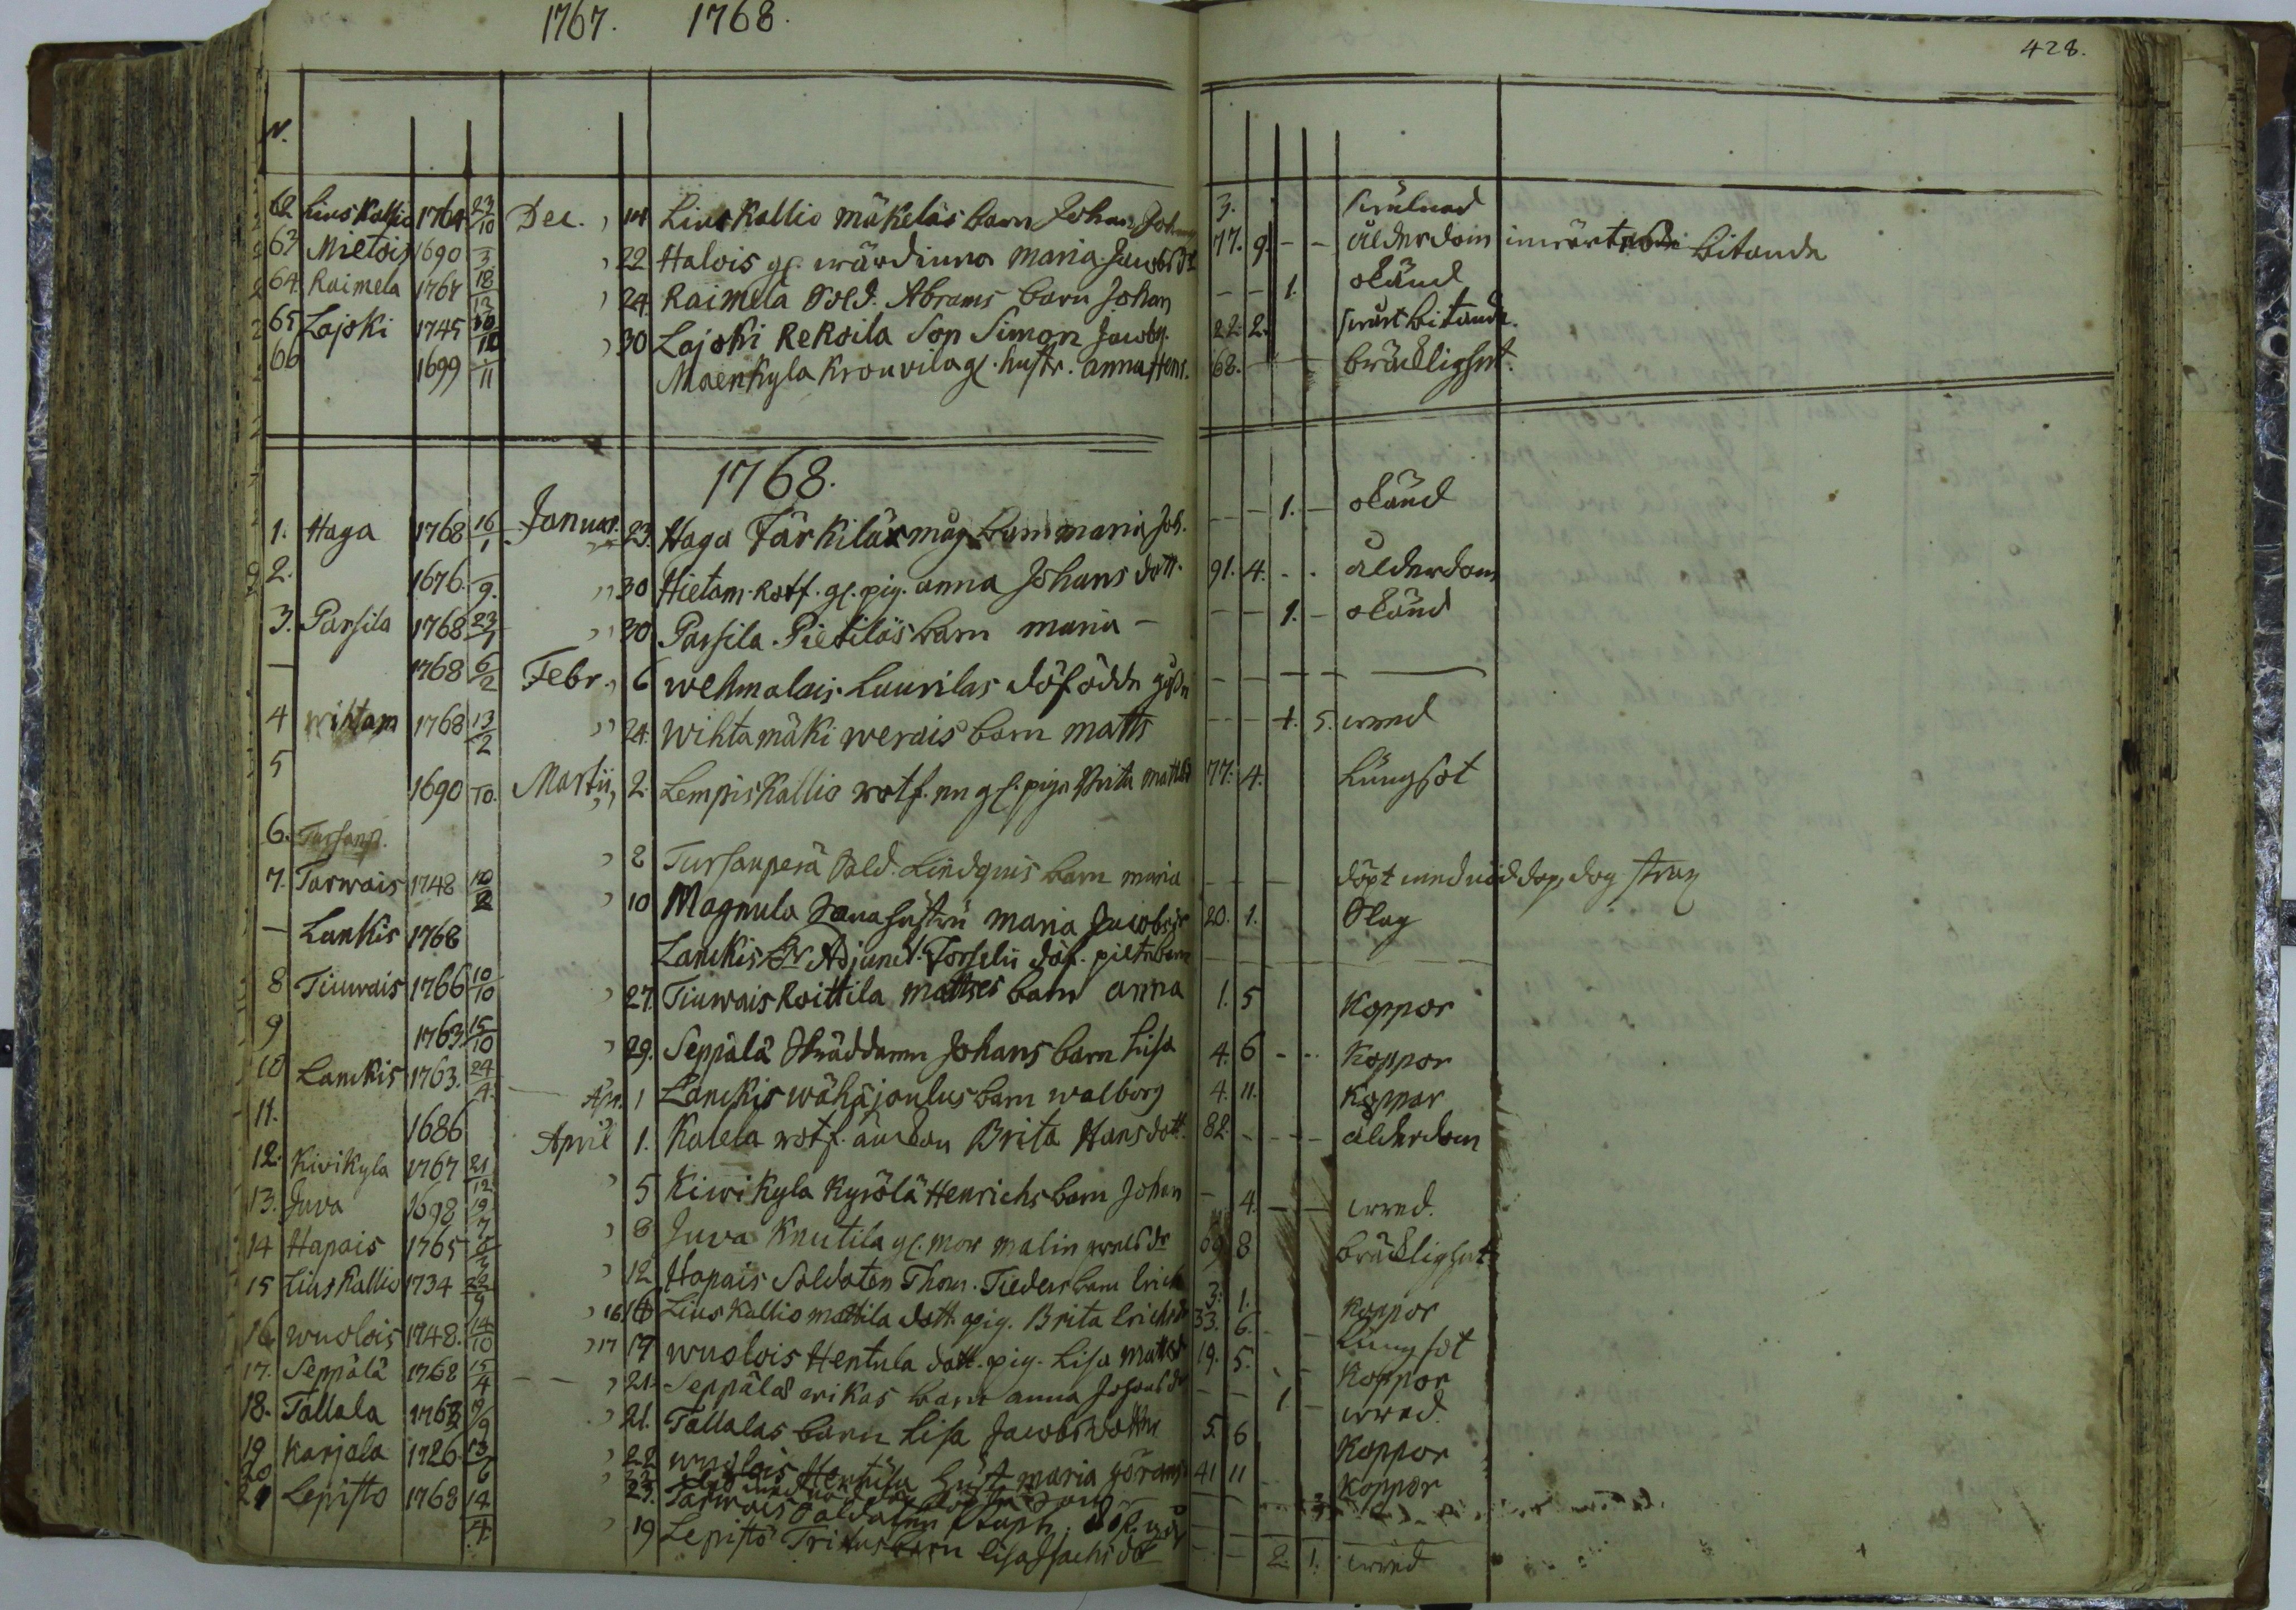 1767. 1768.
428.
N.
62 Liuskallio 1764 23/10 Dec. 14 Liuskallio mäkeläs barn Johan Johans 3.
63 Mietois 1690 3 22 Halois gl. wärdinna Maria Jacobsdr 77. 9. - - ålderdom inwärtes bitande
64. Raimela 1767 18/12 24. Raimela Sold. Abrams barn Johan - - 1. okänd
65 Lajoki 1745 10/10 30 Lajoki Rekoila Son Simon Jacobs. 22. 2. bitande.
66 1699 11 Maenkyla Krouvila gl. hustr. Anna Henr. 68. - - bräcklighet.
1768.
1. Haga 1768 16/1 Januar. 23. Haga Tärkiläx måg barn maria Joh. - - 1. - okänd
2. 1676. 9. 30 Hietam. Rotf. gl. pig. anna Johans dott. 91. 4. - - ålderdom
3. Parsila 1768 23/1 30 Parsila Pietiläs barn maria - - - 1. - okänd
- 1768 6/2 Febr. 6 wehmalais Luurilas döfödde - - - -
4 wihtam 1768 13/2 24. wihtamäki werais barn matts - - 1. 5. wred
5 1690 10. Martii 2. Lempiskallio rotf. gl. piga Brita matts 77. 4. Lungsot
6. Tursanp. 8 Tursanperä Sold. Lindquis barn maria - - - döpt med nöddop, dog strax
7. Tarwais 1748 10/2 10 Magnula hustru maria Jacobsdr 20. 1. Slag
- Lankis 1768 Lanckis Hr Adjunct. Forselii döf. piltebarn
8 Tiuwais 1766 10/10 27. Tiuwais Roittila mattses barn anna 1. 5 Koppor
9 1763 15/10 29. Seppälä Skräddaren Johans barn Lisa 4. 6 - - Koppor
10 Lanckis 1763. 24/4. Apr. 1 Lanckis wähäjoulus barn walborg 4. 11. Koppor
11. 1686 April 1. Katela rotf. änckan Brita Hansdott. 82. - - - ålderdom
12. Kivikyla 1767 21/12 5 Kiwikyla Kyrölä Henrichs barn Johan - 4. - - wred.
13. Juva 1698 19/7 8 Juva Knutila gl. mor malin 69. 8 bräcklighet
14 Hapais 1765 12 Hapais Soldaten Thom. Tieders barn Erich 3. 1. Koppor
15 Liuskallio 1734 22/9 16. Liuskallio mattila dott. pig. Brita Erichsdr 33. 6. - - Lungsot
16 wuolois 1748. 14/10 17 17 wuolois Hentula dott. pig. Lisa mattsdr 19. 5. Koppor
17. Seppälä 1768 15/4 21. Seppäläs erikas barn anna Johansdr - - 1. - wred.
18. Tallala 1762 9/9 21. Tallalas barn Lisa Jacobsdotter 5. 6 Koppor
19 Karjala 1726 13/6 22 wuolois Hentula hust. maria görans 41 11 Koppor
20 23. Tarwais Soldaten
21 Lepisto 1768 14/4 19 Lepistö barn Lisa Isachsdr - - 2. 1. wred